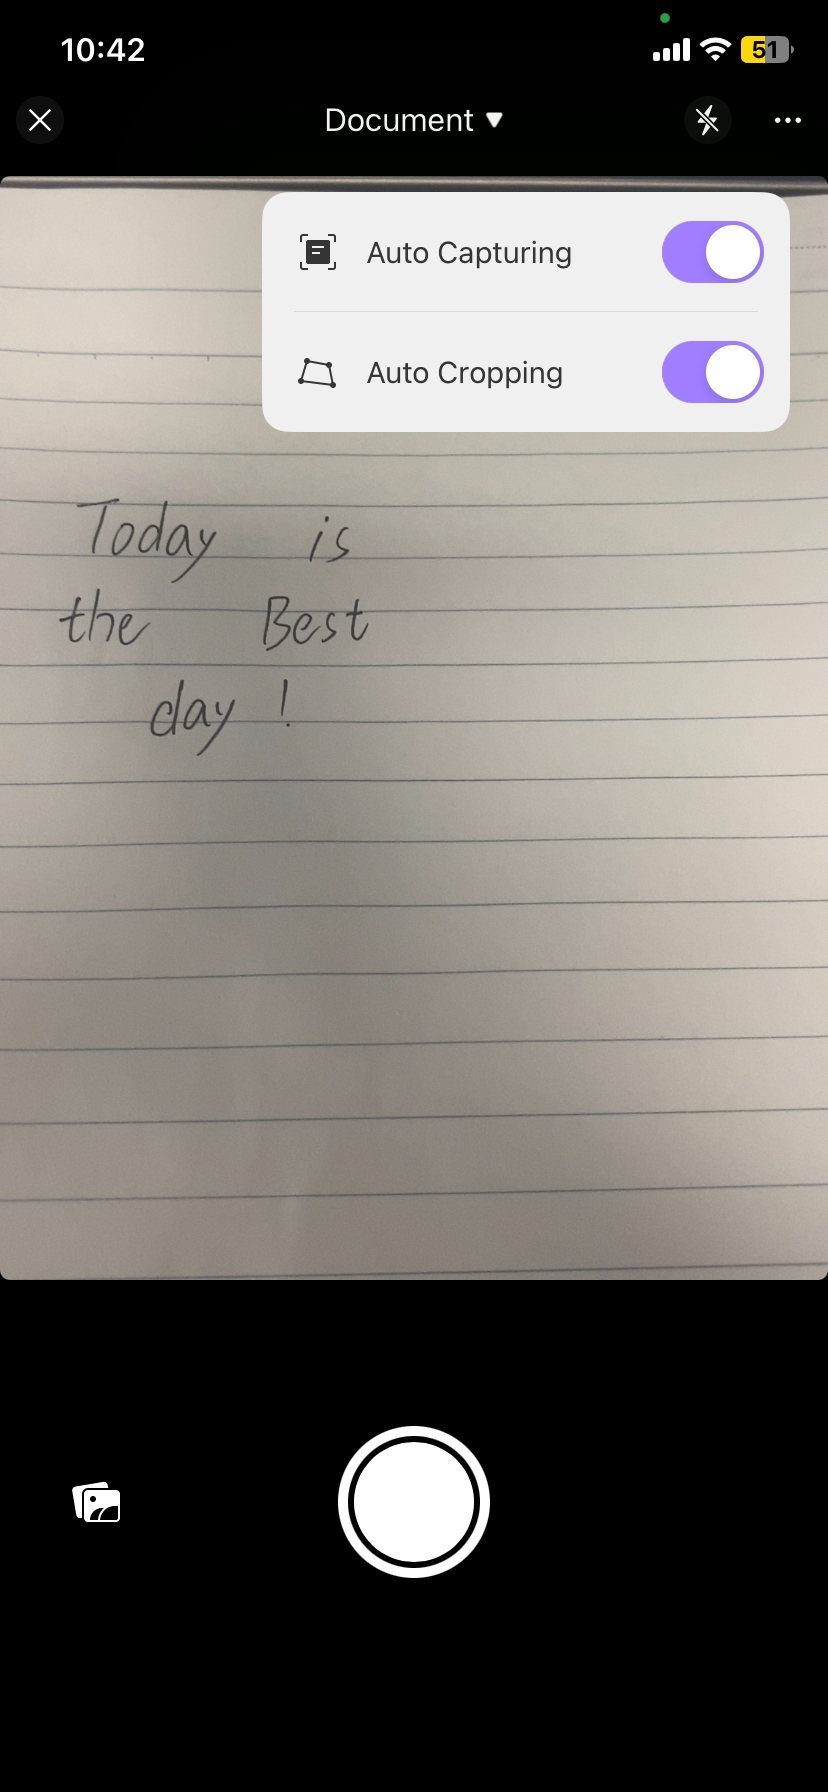 10:42
51
Document
Auto Capturing
Auto Cropping
Today is
the Best
day !